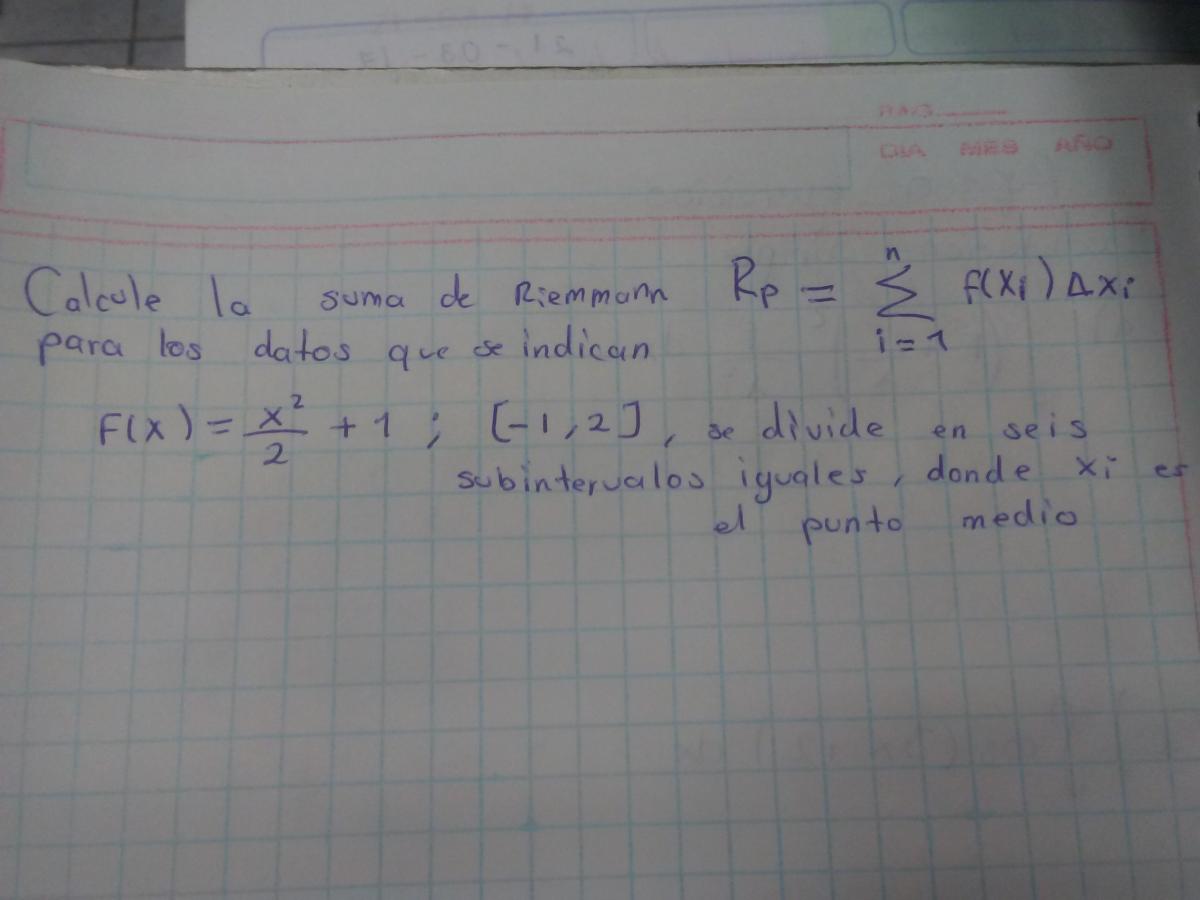 PAG.
DIA MES AÑO
Calcule la suma de Riemmann Rp = n∑i=1 f(xi) Δxi
para los datos que se indican
F(x) = x²/2 + 1 ; [-1, 2], se divide en seis
subintervalos iguales, donde xi es
el punto medio